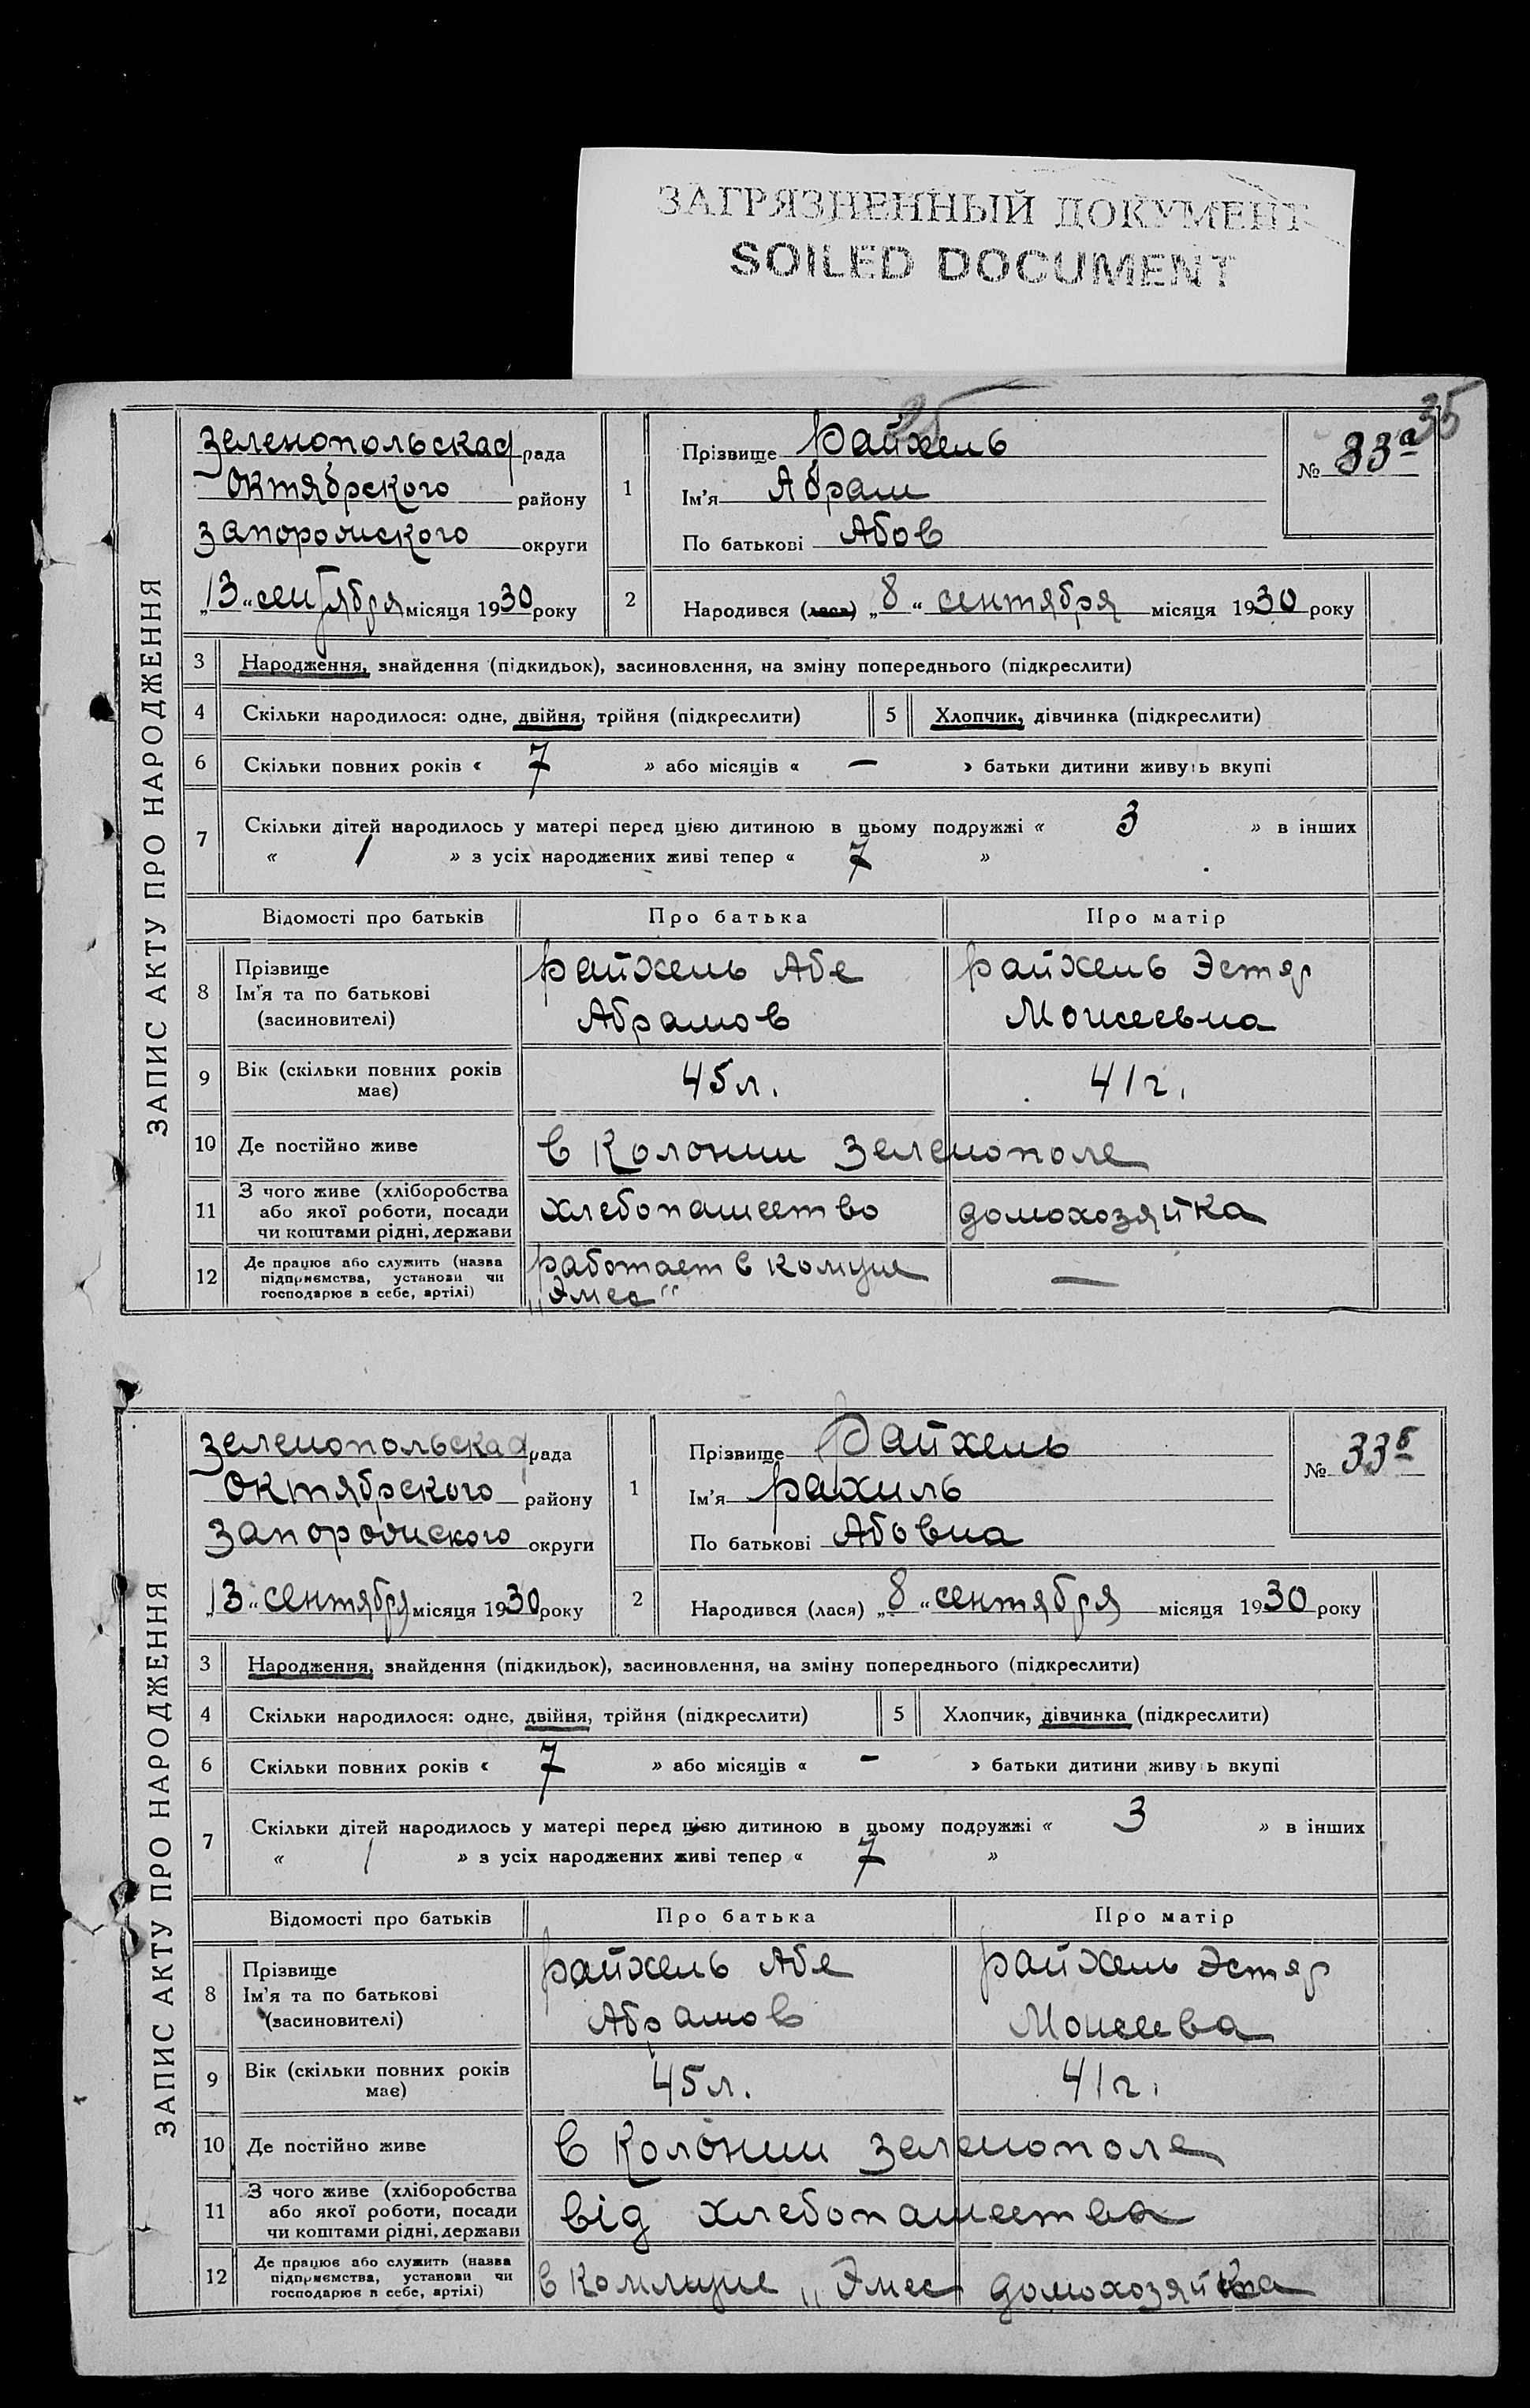 ЗАГРЯЗНЕННЫЙ ДОКУМЕНТ
SOILED DOCUMENT
35
ЗАПИС АКТУ ПРО НАРОДЖЕННЯ
Зеленопольская рада
Октябрского району
Запорожского округи
„13“ сентября місяця 1930 року
1
Прізвище Райхель
Ім'я Абрам
По батькові Абов
№ 33а
2
Народився (лася) „8“ сентября місяця 1930 року
3 Народження, знайдення (підкидьок), засиновлення, на зміну попереднього (підкреслити)
4 Скільки народилося: одне, двійня, трійня (підкреслити) 5 Хлопчик, дівчинка (підкреслити)
6 Скільки повних років « 7 » або місяців « — » батьки дитини живуть вкупі
7 Скільки дітей народилось у матері перед цією дитиною в цьому подружжі « 3 » в інших
« 1 » з усіх народжених живі тепер « 7 »
Відомості про батьків Про батька Про матір
8 Прізвище Ім'я та по батькові (засиновителі)
Райхель Абе Абрамов
Райхель Эстер Моисеевна
9 Вік (скільки повних років має) 45 л. 41 г.
10 Де постійно живе в Колонии Зеленополе
11 З чого живе (хліборобства або якої роботи, посади чи коштами рідні, держави
хлебопашество домохозяйка
12 Де працює або служить (назва підприємства, установи чи господарює в себе, артілі)
работает в комуне „Эмес“ —
ЗАПИС АКТУ ПРО НАРОДЖЕННЯ
Зеленопольская рада
Октябрского району
Запорожского округи
„13“ сентября місяця 1930 року
1
Прізвище Райхель
Ім'я Рахиль
По батькові Абовна
№ 33б
2
Народився (лася) „8“ сентября місяця 1930 року
3 Народження, знайдення (підкидьок), засиновлення, на зміну попереднього (підкреслити)
4 Скільки народилося: одне, двійня, трійня (підкреслити) 5 Хлопчик, дівчинка (підкреслити)
6 Скільки повних років « 7 » або місяців « - » батьки дитини живуть вкупі
7 Скільки дітей народилось у матері перед цією дитиною в цьому подружжі « 3 » в інших
« 1 » з усіх народжених живі тепер « 7 »
Відомості про батьків Про батька Про матір
8 Прізвище Ім'я та по батькові (засиновителі)
Райхель Абе Абрамов
Райхель Эстер Моисеева
9 Вік (скільки повних років має) 45 л. 41 г.
10 Де постійно живе в Колонии Зеленополе
11 З чого живе (хліборобства або якої роботи, посади чи коштами рідні, держави
від хлебопашества
12 Де працює або служить (назва підприємства, установи чи господарює в себе, артілі)
в Коммуне „Эмес домохозяйка